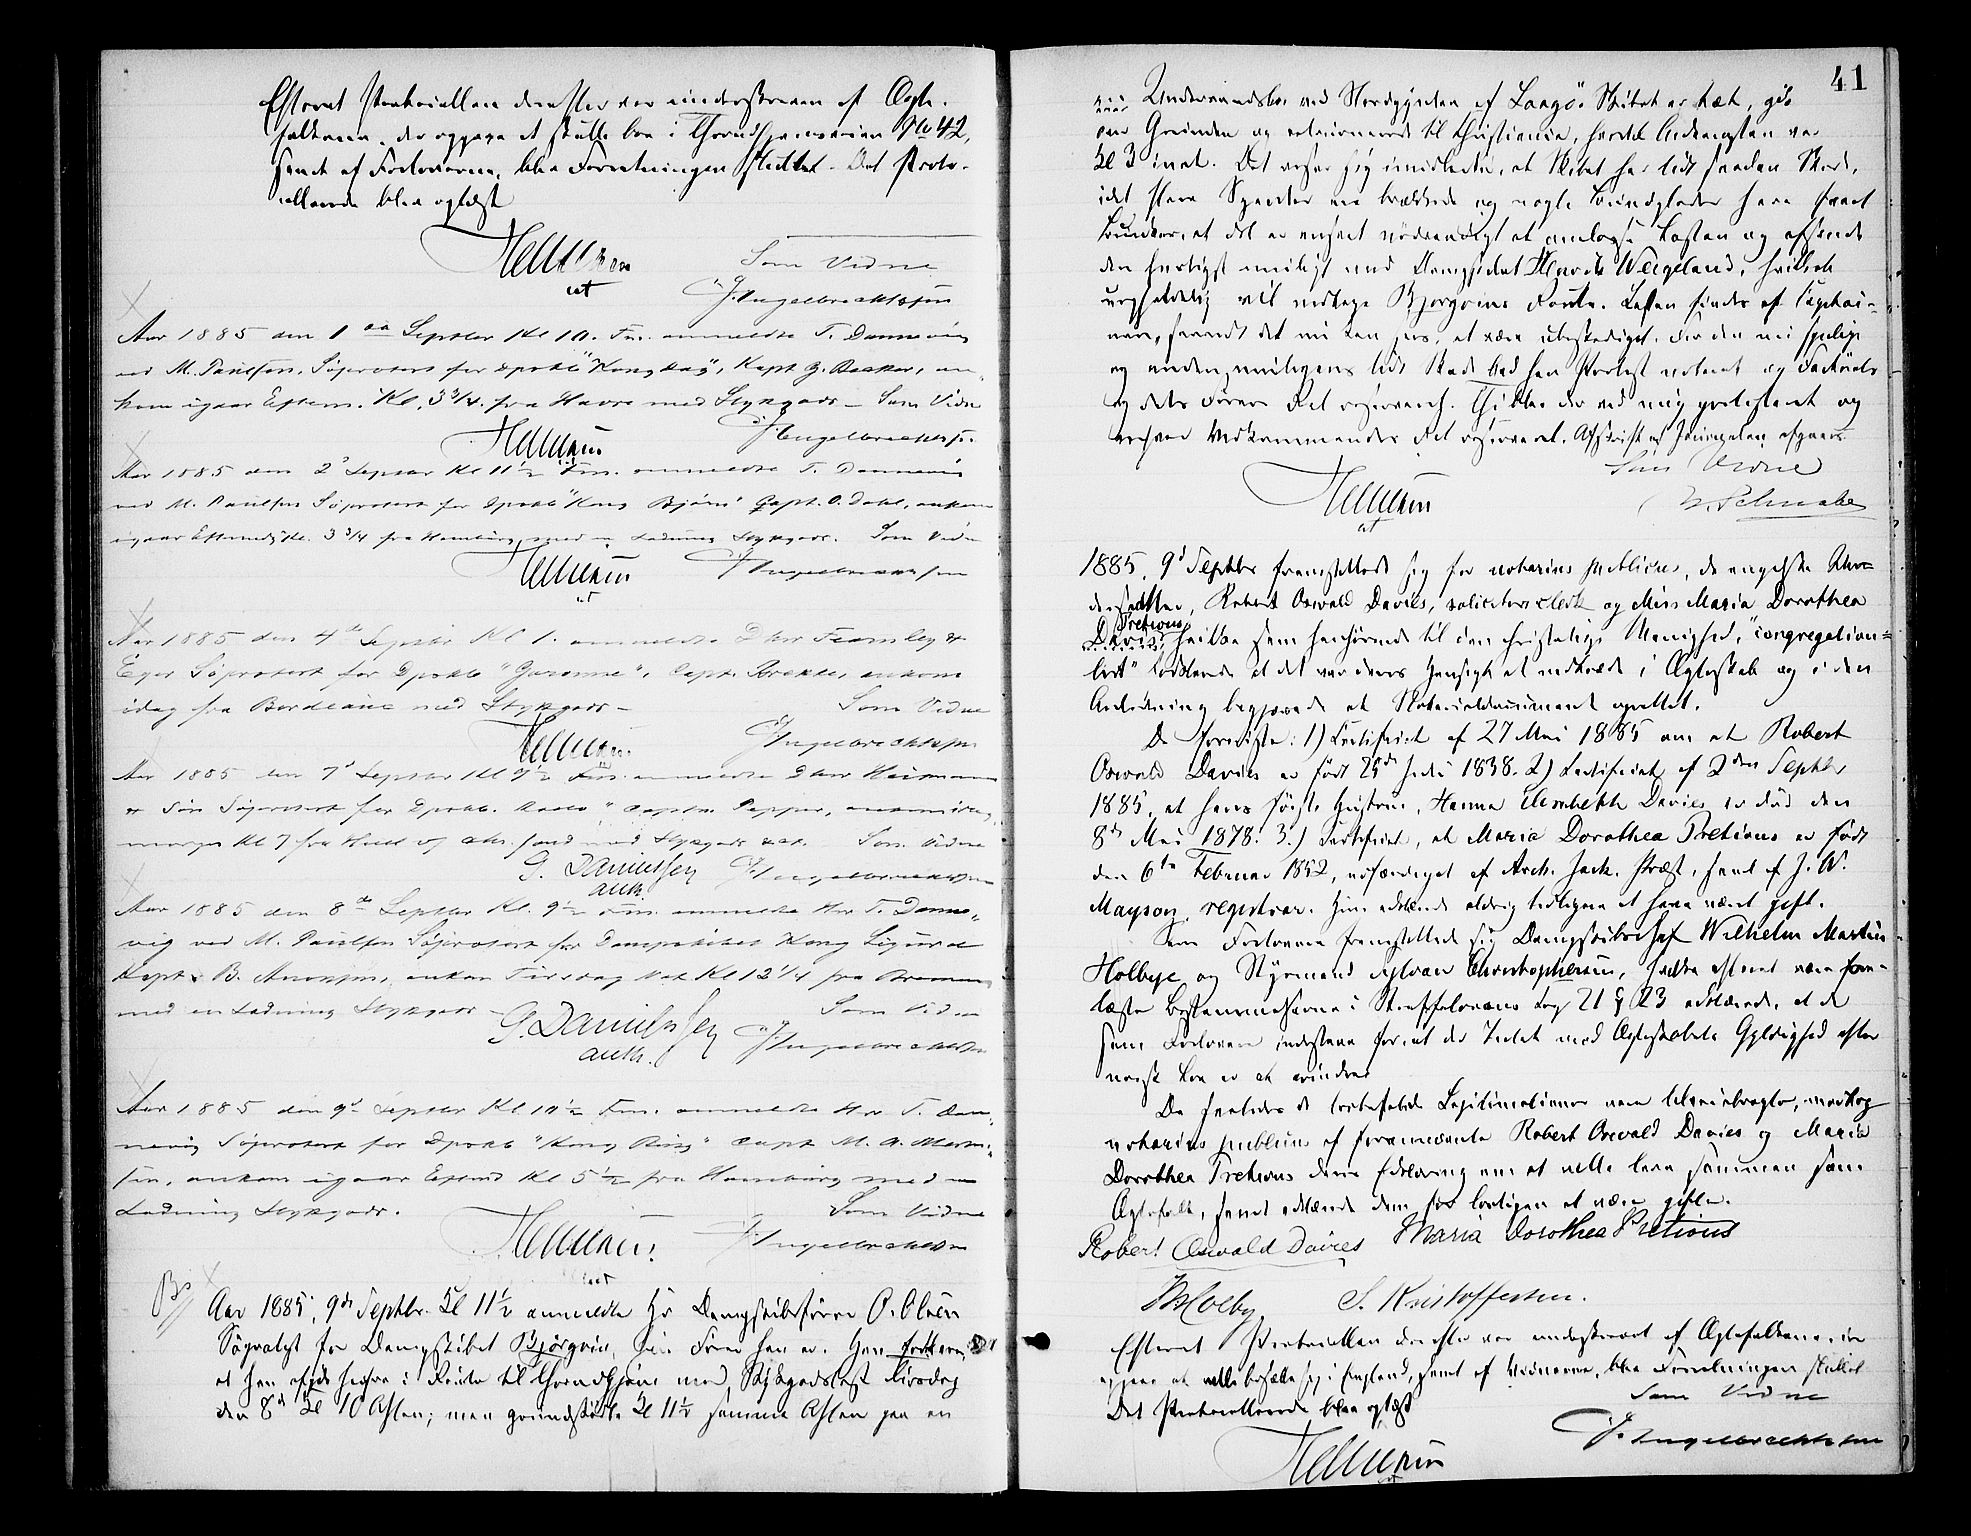 Efterat Protocollen derefter var underskreven af Ægte-
folkene, der opgave at skulle bo i Throndhjemsveien No 42,
samt af Forloverne, blev Forretningen sluttet. Det Proto-
collerede blev oplæst
Som Vidne
J. Engelbrechtsen
Aar 1885 den 1ste Septbr Kl 10. Fm. anmeldte T. Dannevig
ved M. Paulsen, Søprotest for Dpskb "Kong Dag", Kapt G. Becker, an-
kom igaar Efterm. Kl. 3 3/4 fra Havre med Stykgods – Som Vidne
J. Engelbrechtsen
Aar 1885 den 2' Septbr Kl 11 1/2 Fm. anmeldte T. Dannevig
ved M. Paulsen Søprotest for Dpskb "Kong Bjørn" Capt. O. Dahl, ankom
igaar Eftermd Kl. 3 3/4 fra Hamburg med en Ladning Stykgods. Som Vidne
J. Engelbrechtsen
Aar 1885 den 4de Septbr Kl 1. anmeldte DHrr Fearnley &
Eger Søprotest for Dpskb "Garonne", Capt. Brekke, ankom
idag fra Bordeaux med Stykgods – Som Vidne
J. Engelbrechtsen
Aar 1885 den 7' Septbr Kl 9 1/2 Fm. anmeldte DHrr Heitmann
& Søn Søprotest for Dpskb. "", Captn. Pepper, ankom idag
morges Kl 7 fra Hull og Chr.sand med Stykgods Som Vidne
G. Danielssen J. Engelbrechtsen
auth.
Aar 1885 den 8de Septbr Kl. 9 1/2 Fm. anmeldte Hr T. Danne-
vig ved M. Paulsen Søprotest for Dampskibet Kong Sigurd
Kapt B. , ankom Tirsdag Nat Kl 12 1/4 fra Bremen
med en Ladning Stykgods – Som Vidne
G. Danielssen J. Engelbrechtsen
auth.
Aar 1885 den 9de Septbr Kl 10 1/2 Fm. anmeldte Hr T. Dan-
nevig Søprotest for Dpskb "Kong Ring" Capt M. A. Marti-
sen, ankom igaar Eftmd Kl 5 1/2 fra Hamburg med en
Ladning Stykgods. Som Vidne
J. Engelbrechtsen
Aar 1885, 9de Septbr. Kl 11 1/2 anmeldte Hr Dampskibsfører O. Olsen
Søprotest for Dampskibet Bjørgvin, hvis Fører han er. Han forklarede,
at han afgik herfra i Route til Throndhjem med Stykgodslast Tirsdag
den 8d Kl 10 Aften; men grundstødte Kl 11 1/2 samme Aften paa en
41
Undervandsbaa ved Nordspynten af Langö. Skibet er tæt, gik
over Grunden og returnerede til Christiania, hvortil Ankomsten var
Kl 3 inat. Det viser sig imidlertid, at Skibet har lidt saadan Skade,
idet flere Spanter ere brækkede og nogle Bundplader have faaet
Bunker, at det er anseet nödvendigt at omlosse Lasten og afsende
den hurtigst muligt med Dampskibet Henrik Wergeland, hvilket
uopholdelig vil indtage Bjørgvins Route. Lasten findes af Kaptai-
nen, saavidt det nu kan sees, at være ubeskadiget. For den nu synlige
og anden muligens lidt Skade bad han Protest noteret og Factoriets
og dets Førers Ret reserveret. Thi blev der ved mig protesteret og
enhver Vedkommendes Ret reserveret. Afskrift af Journalen afgaar
Som Vidne
N. Schwabe
1885, 9d Septbr fremstillede sig for notarius publicus, de engelske Un-
dersaatter, Robert Oswald Davies, solicitors clerk og Miss Maria Dorothea
Pretious
Davis, hvilke som henhørende til den christelige Menighed, "congregation-
list" erklærede at det var deres Hensigt at indtræde i Ægteskab og i den
Anledning begjærede et Notarialdocument oprettet.
De foreviste: 1) Certificat af 27 Mai 1885 om at Robert
Oswald Davies er født 25de Juli 1838. 2) Certificat af 2den Septbr
1885, at hans første Hustru, Hanna Elisabeth Davies er død den
8de Mai 1878. 3.) Certificat, at Maria Dorothea Pretious er født
den 6te Februar 1852, udfærdiget af Arch. Jack. Prest, samt af J. W.
Mayson, registrar. Hun erklærede aldrig tidligere at have været gift.
Som Forlovere fremstillede sig Dampskibschef Wilhelm Martin
Holbye og Styrmand Sylvan Christophersen, hvilke efterat være fore-
læste Bestemmelserne i Straffelovens Cap 21 § 23 erklærede, at de
som Forlovere indestaa for, at der Intet mod Ægteskabets Gyldighed efter
norsk Lov er at erindre
Da saaledes de lovbefalede Legitimationer vare tilveiebragte, modtog
notarius publicus af forannævnte Robert Oswald Davies og Maria
Dorothea Pretious deres Erklæring om at ville leve sammen som
Ægtefolk, samt erklærede dem for lovligen at være gifte.
Robert Oswald Davies Maria Dorothea Pretious
Holby S. Kristoffersen.
Efterat Protocollen derefter var underskrevet af Ægtefolkene, der
opgave at ville bosætte sig i England, samt af Vidnerne, blev Forretningen sluttet
Det Protocollerede blev oplæst Som Vidne
J. Engelbrechtsen